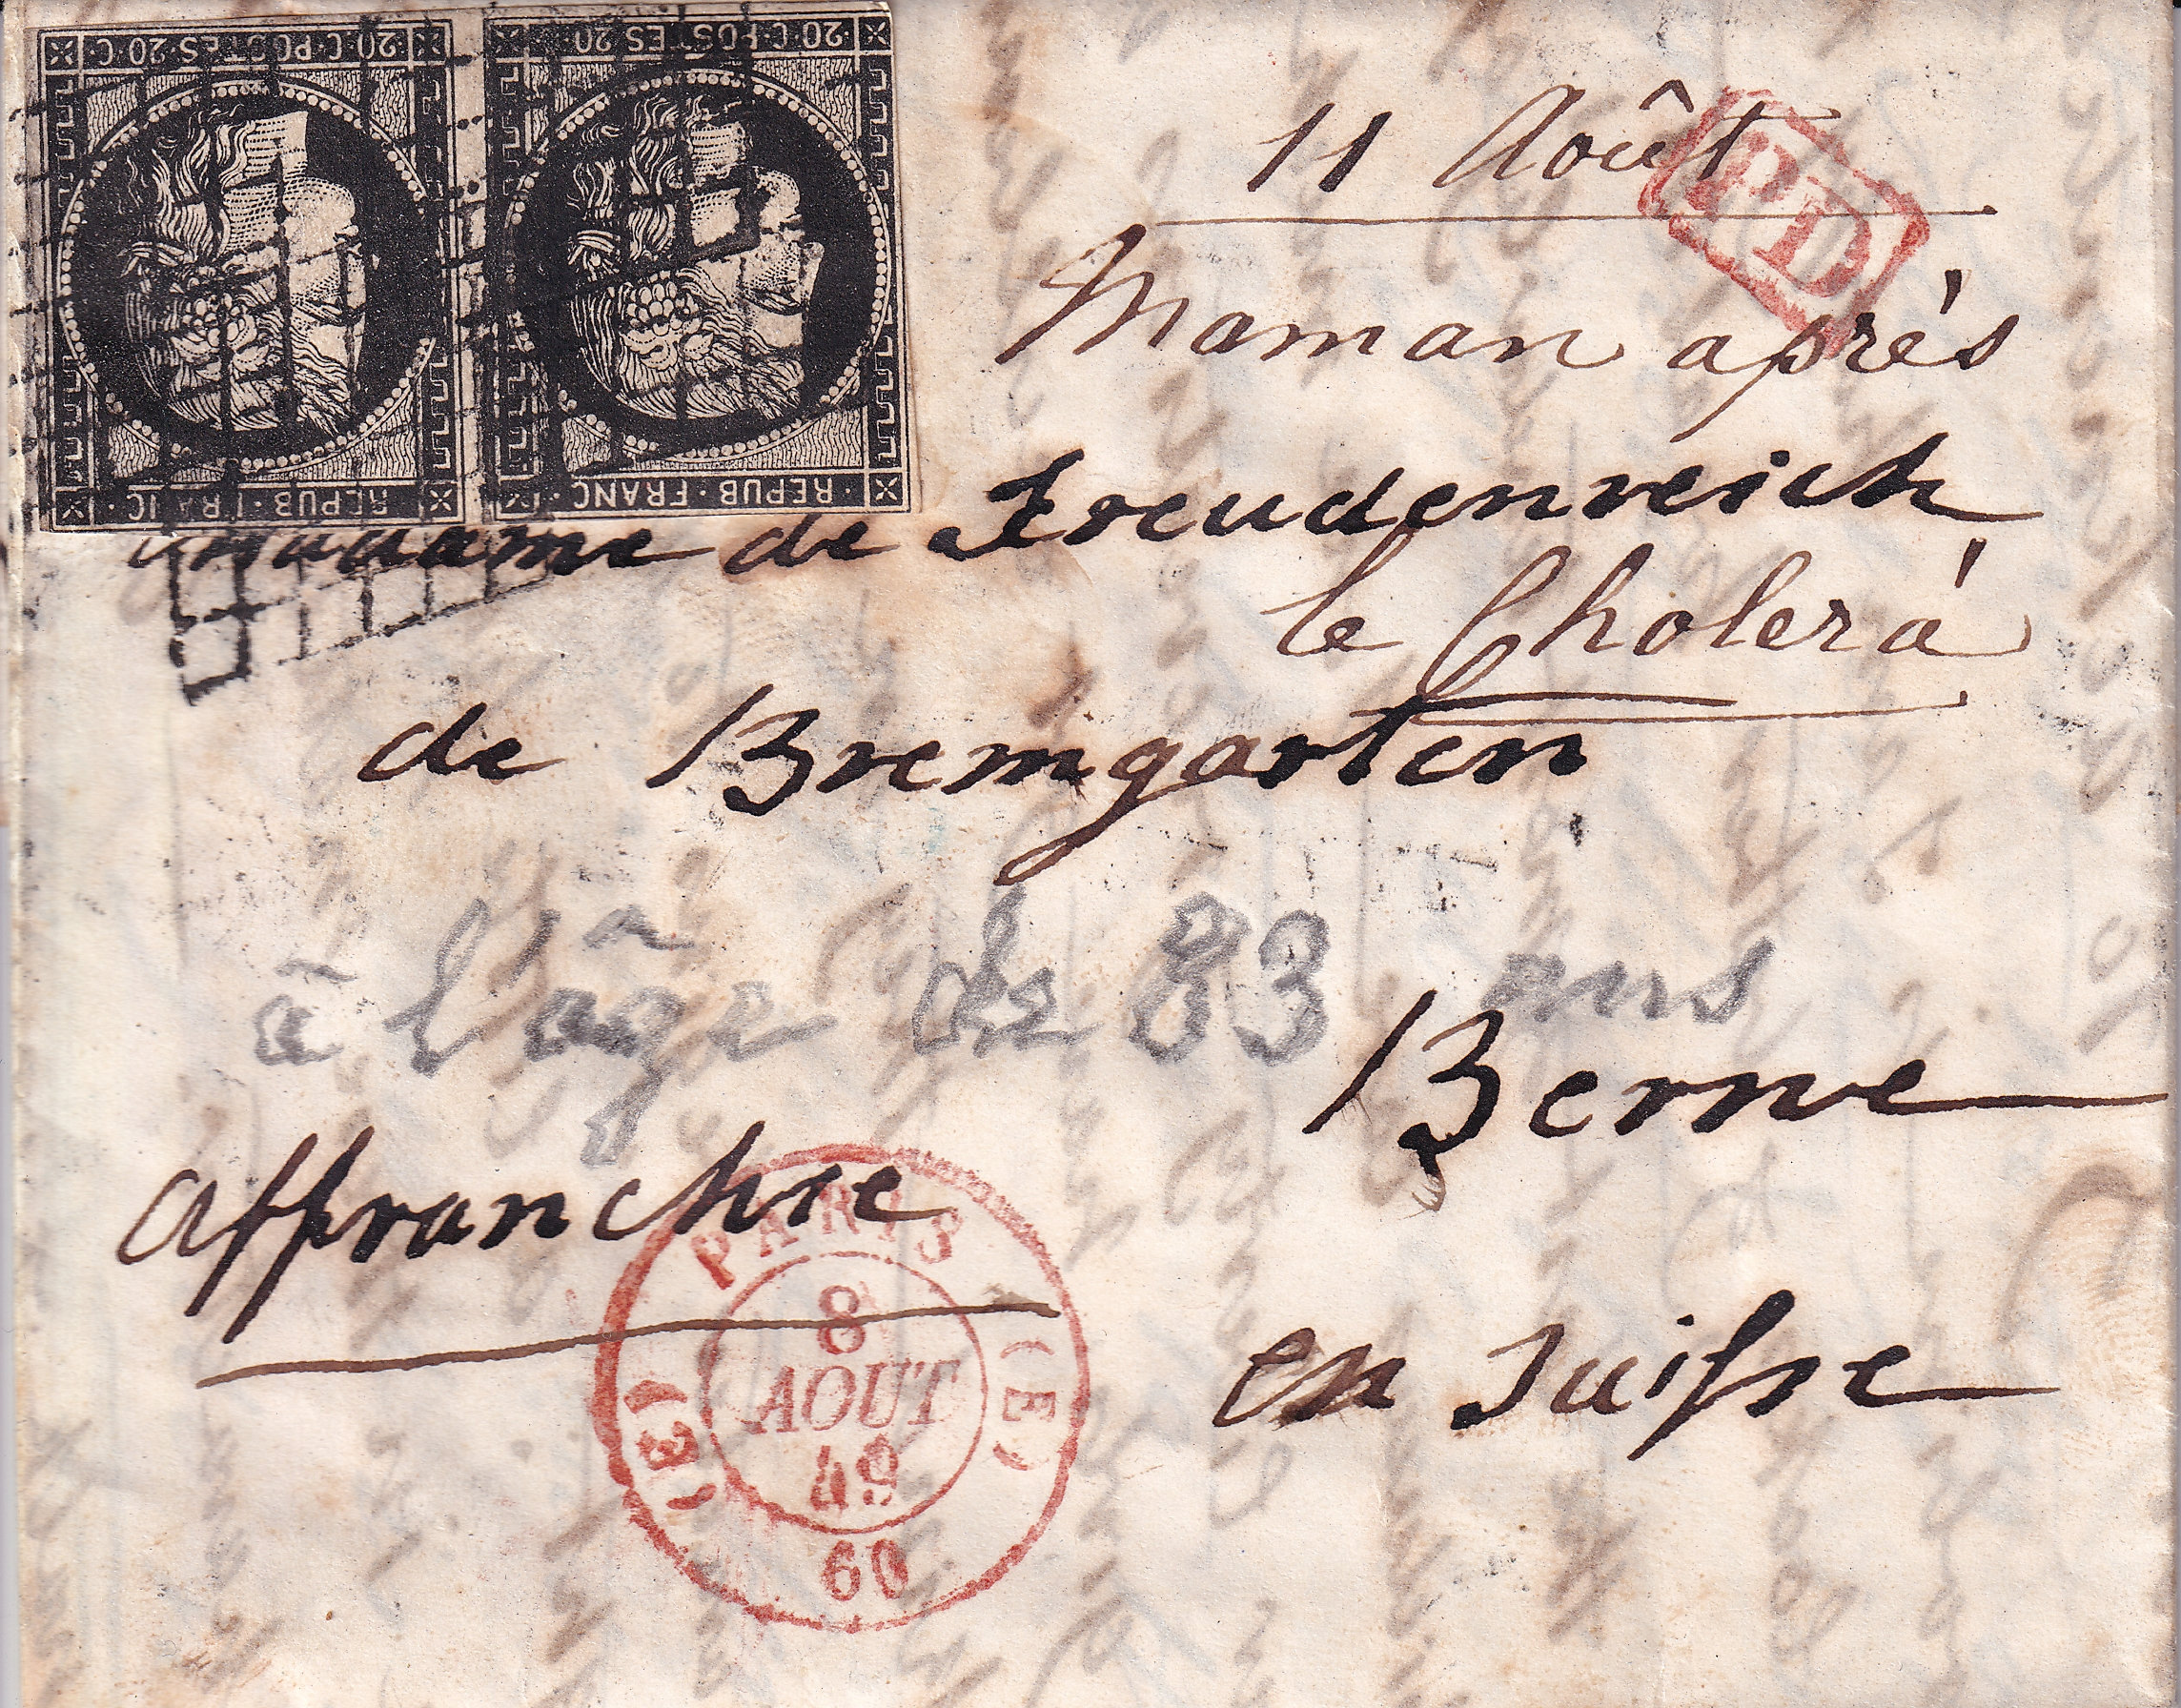 20 C · POSTES · 20 · C
20 · C · POSTES 20 ·
REPUB · FRANC
REPUB · FRANC ·
11 Août
PD
Maman après
Madame de Freudenreich
le Cholerà
de Bremgarten
à l'âge de 83 ans
Berne
affranchie
en Suisse
PARIS
(E) (E)
8
AOUT
49
60